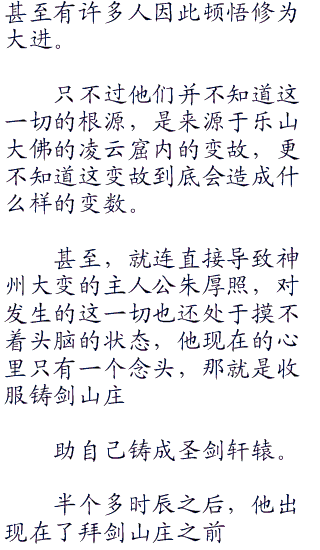 甚至有许多人因此顿悟修为
大进。
只不过他们并不知道这
一切的根源，是来源于乐山
大佛的凌云窟内的变故，更
不知道这变故到底会造成什
么样的变数。
甚至，就连直接导致神
州大变的主人公朱厚照，对
发生的这一切也还处于摸不
着头脑的状态，他现在的心
里只有一个念头，那就是收
服铸剑山庄
助自己铸成圣剑轩辕。
半个多时辰之后，他出
现在了拜剑山庄之前